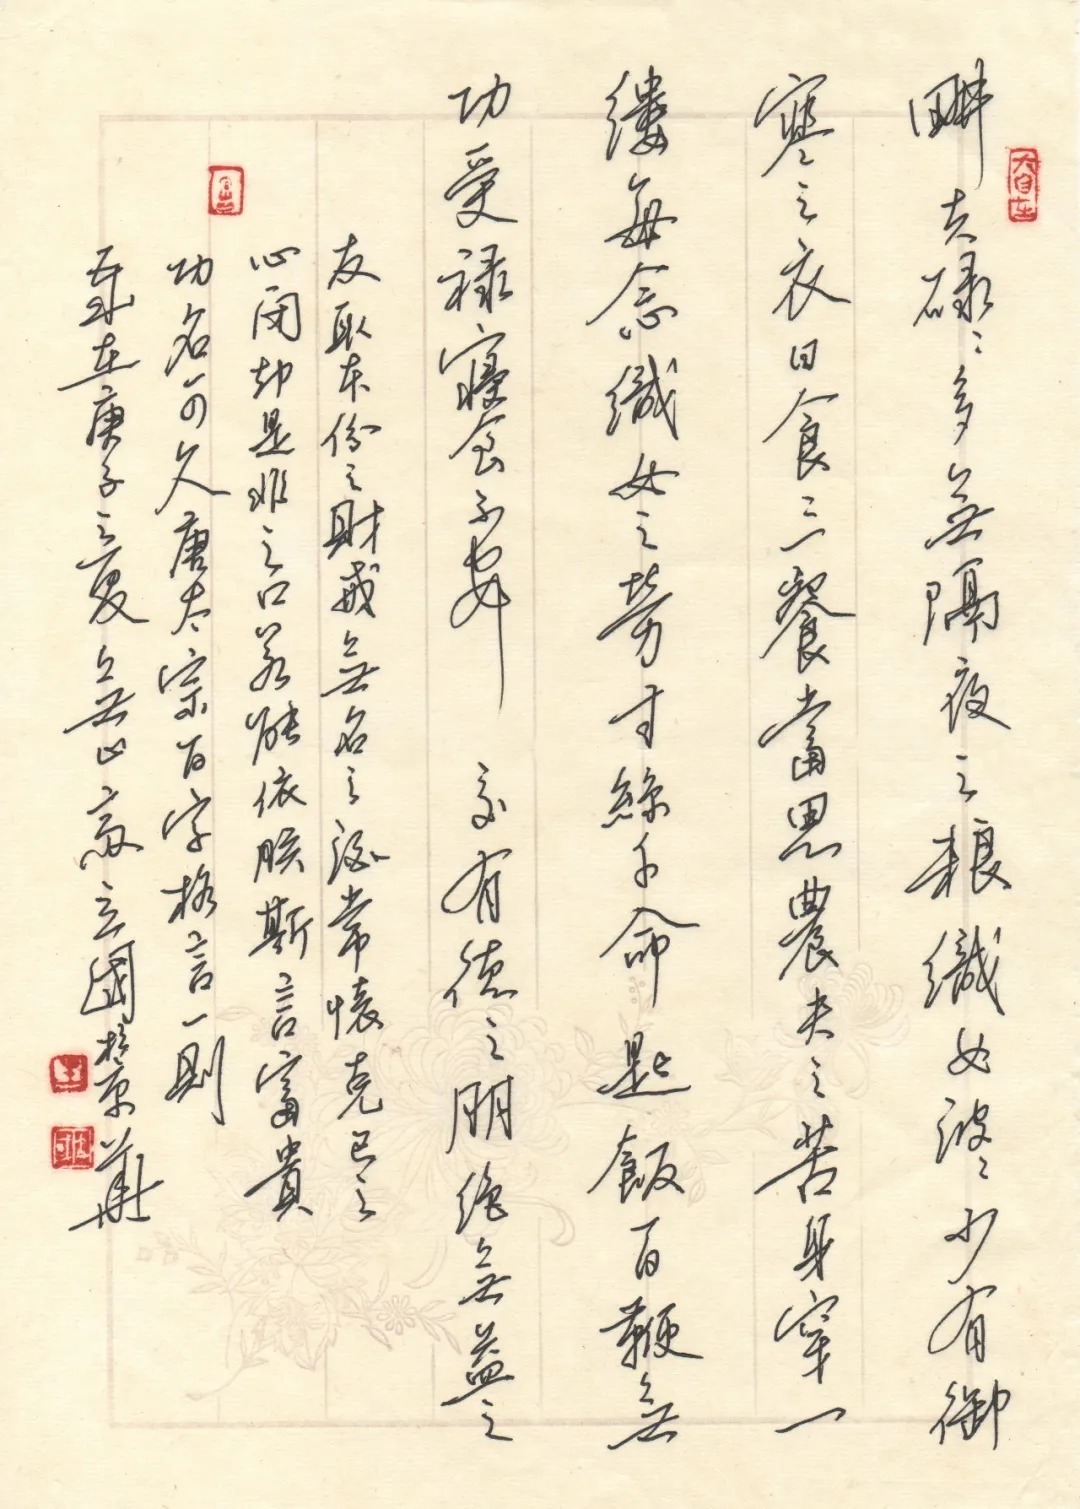 大自在
畊夫碌々多無隔夜之粮織女波々少有御
寒之衣日食三餐當思農夫之苦身穿一
縷每念織女之勞寸絲千命匙飯百鞭無
功受禄寢食不安 交有德之朋絶無益之
友取本份之財戒無名之酒常懷克己之
心闭却是非之口若能依朕斯言富貴
功名可久唐太宗百字格言一則
歲在庚子之夏無山齋立國於京華